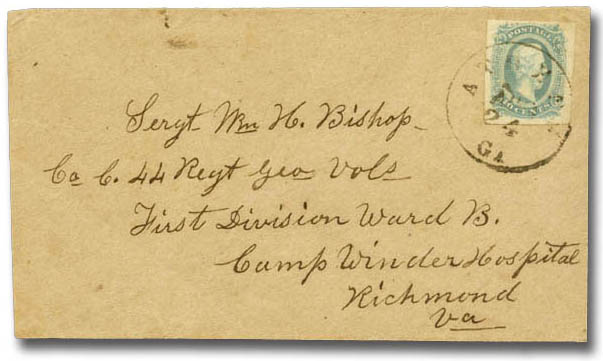 POSTAGE
TEN CENTS
24
GA
Sergt Wm H. Bishop
Co C. 44 Regt Geo Vols
First Division Ward B.
Camp Winder Hospital
Richmond
Va